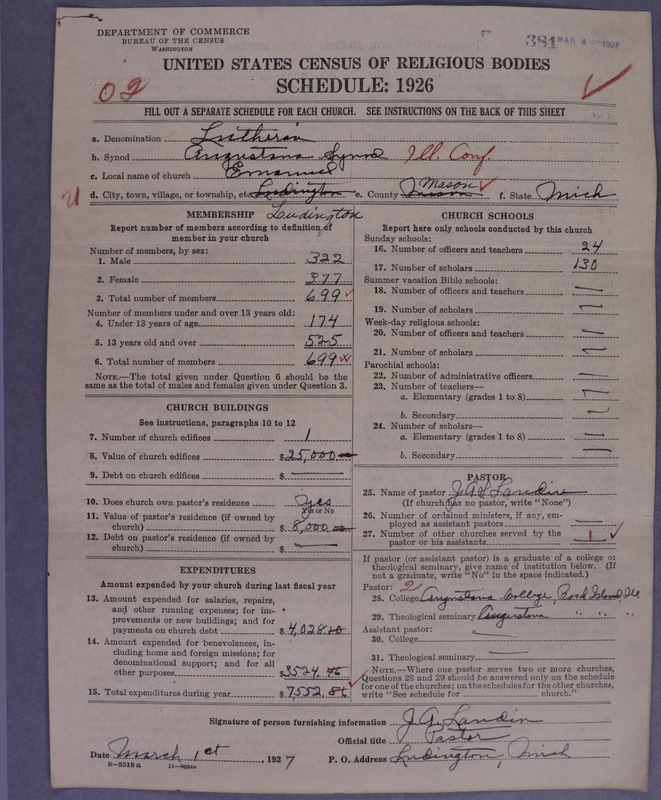 DEPARTMENT OF COMMERCE
BUREAU OF THE CENSUS
WASHINGTON
381 MAR 4 1927
UNITED STATES CENSUS OF RELIGIOUS BODIES
SCHEDULE: 1926
02
FILL OUT A SEPARATE SCHEDULE FOR EACH CHURCH. SEE INSTRUCTIONS ON THE BACK OF THIS SHEET
a. Denomination Lutheran
b. Synod Augustana Synod Ill. Conf.
c. Local name of church Emanuel
21 d. City, town, village, or township, etc. Ludington e. County Mason f. State Mich
Ludington
MEMBERSHIP
Report number of members according to definition of
member in your church
Number of members, by sex:
1. Male 322
2. Female 377
3. Total number of members 699
Number of members under and over 13 years old:
4. Under 13 years of age 174
5. 13 years old and over 525
6. Total number of members 699
NOTE.—The total given under Question 6 should be the
same as the total of males and females given under Question 3.
CHURCH BUILDINGS
See instructions, paragraphs 10 to 12
7. Number of church edifices 1
8. Value of church edifices $25,000
9. Debt on church edifices $ —
10. Does church own pastor's residence yes
Yes or No
11. Value of pastor's residence (if owned by
church) $8,000.00
12. Debt on pastor's residence (if owned by
church) $ —
EXPENDITURES
Amount expended by your church during last fiscal year
13. Amount expended for salaries, repairs,
and other running expenses; for im-
provements or new buildings; and for
payments on church debt $4,028.10
14. Amount expended for benevolences, in-
cluding home and foreign missions; for
denominational support; and for all
other purposes $3524.
15. Total expenditures during year $7,552.
CHURCH SCHOOLS
Report here only schools conducted by this church
Sunday schools:
16. Number of officers and teachers 24
17. Number of scholars 130
Summer vacation Bible schools:
18. Number of officers and teachers —
19. Number of scholars —
Week-day religious schools:
20. Number of officers and teachers —
21. Number of scholars —
Parochial schools:
22. Number of administrative officers —
23. Number of teachers—
a. Elementary (grades 1 to 8) —
b. Secondary —
24. Number of scholars—
a. Elementary (grades 1 to 8) —
b. Secondary —
PASTOR
25. Name of pastor J A Landin
(If church has no pastor, write "None")
26. Number of ordained ministers, if any, em-
ployed as assistant pastors —
27. Number of other churches served by the
pastor or his assistants 1
If pastor (or assistant pastor) is a graduate of a college or
theological seminary, give name of institution below. (If
not a graduate, write "No" in the space indicated.)
Pastor: 2
28. College Augustana College, Rock Island, Ill
29. Theological seminary Augustana " " "
Assistant pastor:
30. College —
31. Theological seminary —
NOTE.—Where one pastor serves two or more churches,
Questions 28 and 29 should be answered only on the schedule
for one of the churches; on the schedules for the other churches,
write "See schedule for church."
Signature of person furnishing information J. A. Landin
Official title Pastor
Date March 1st, 1927 P. O. Address Ludington, Mich
8—5518 a